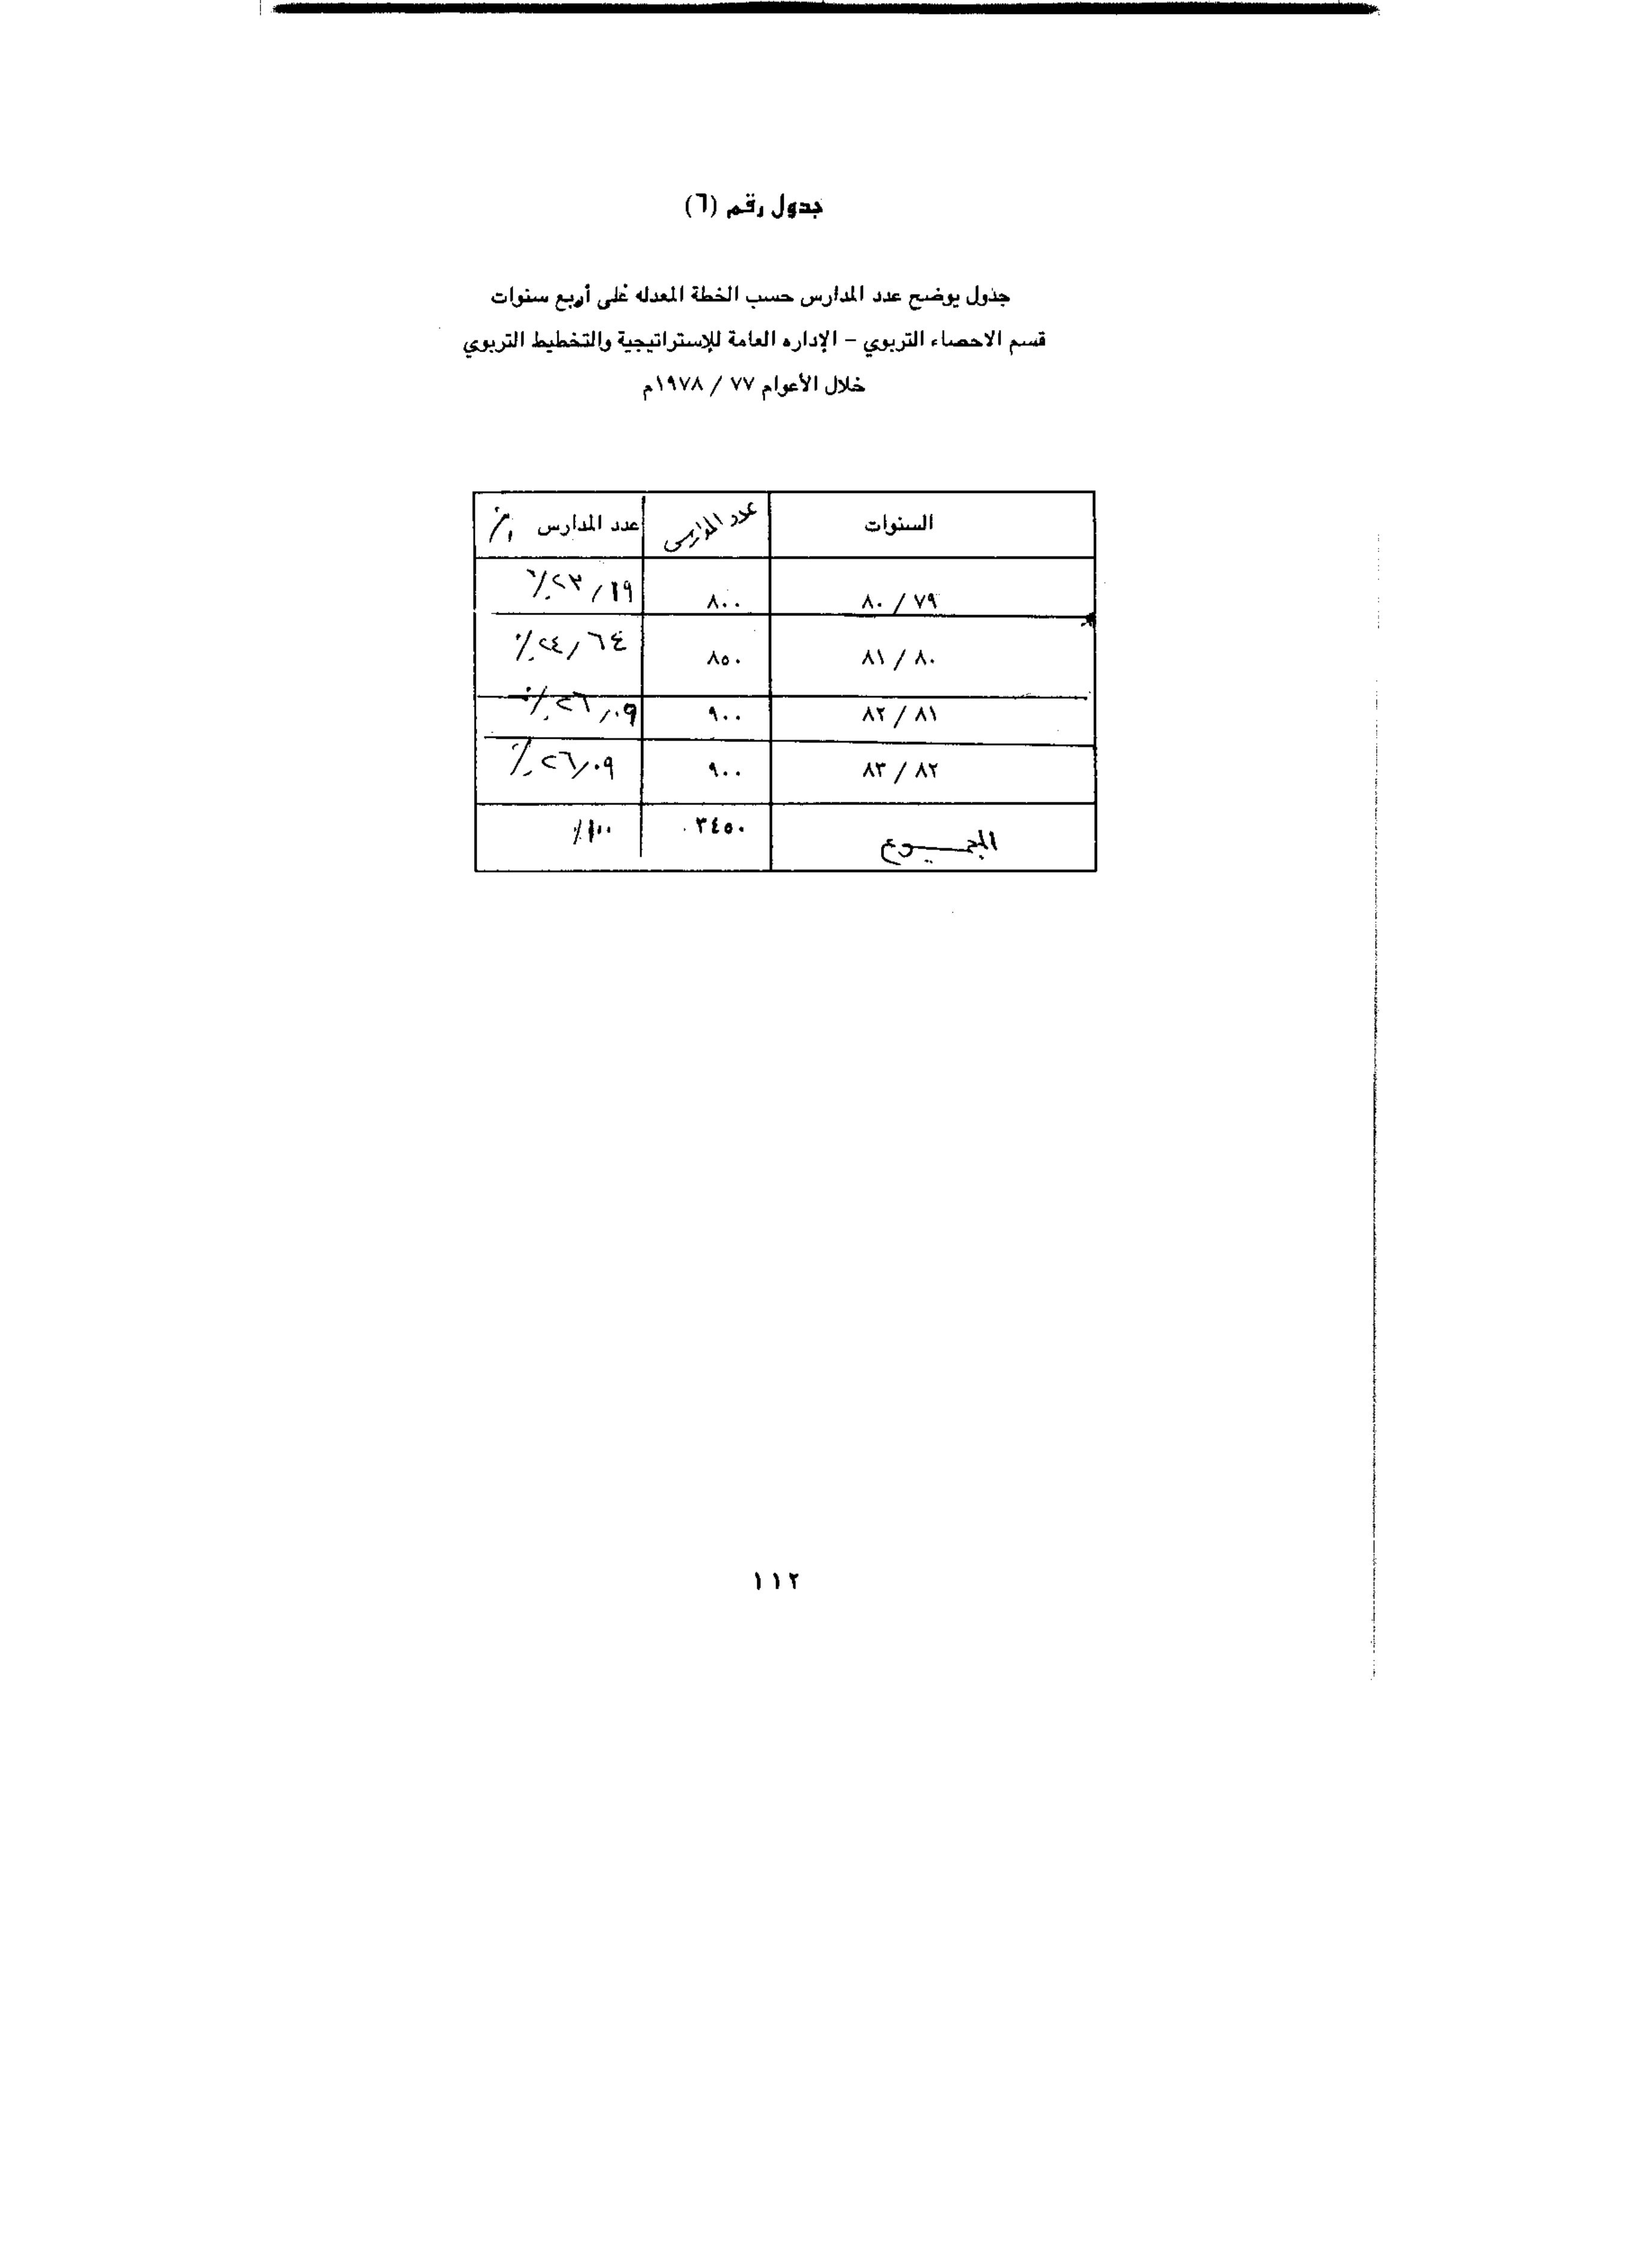 جدول رقم (٦)
جدول يوضح عدد المدارس حسب الخطة المعدله على أربع سنوات
قسم الاحصاء التربوي – الإداره العامة للإستراتيجية والتخطيط التربوي
خلال الأعوام ٧٧ / ١٩٧٨م
السنوات عدد المدارس عدد المدارس ٪
٧٩ / ٨٠ ٨٠٠ ٢٣,١٩٪
٨٠ / ٨١ ٨٥٠ ٢٤,٦٤٪
٨١ / ٨٢ ٩٠٠ ٢٦,٠٩٪
٨٢ / ٨٣ ٩٠٠ ٢٦,٠٩٪
المجموع ٣٤٥٠ ١٠٠٪
١١٢